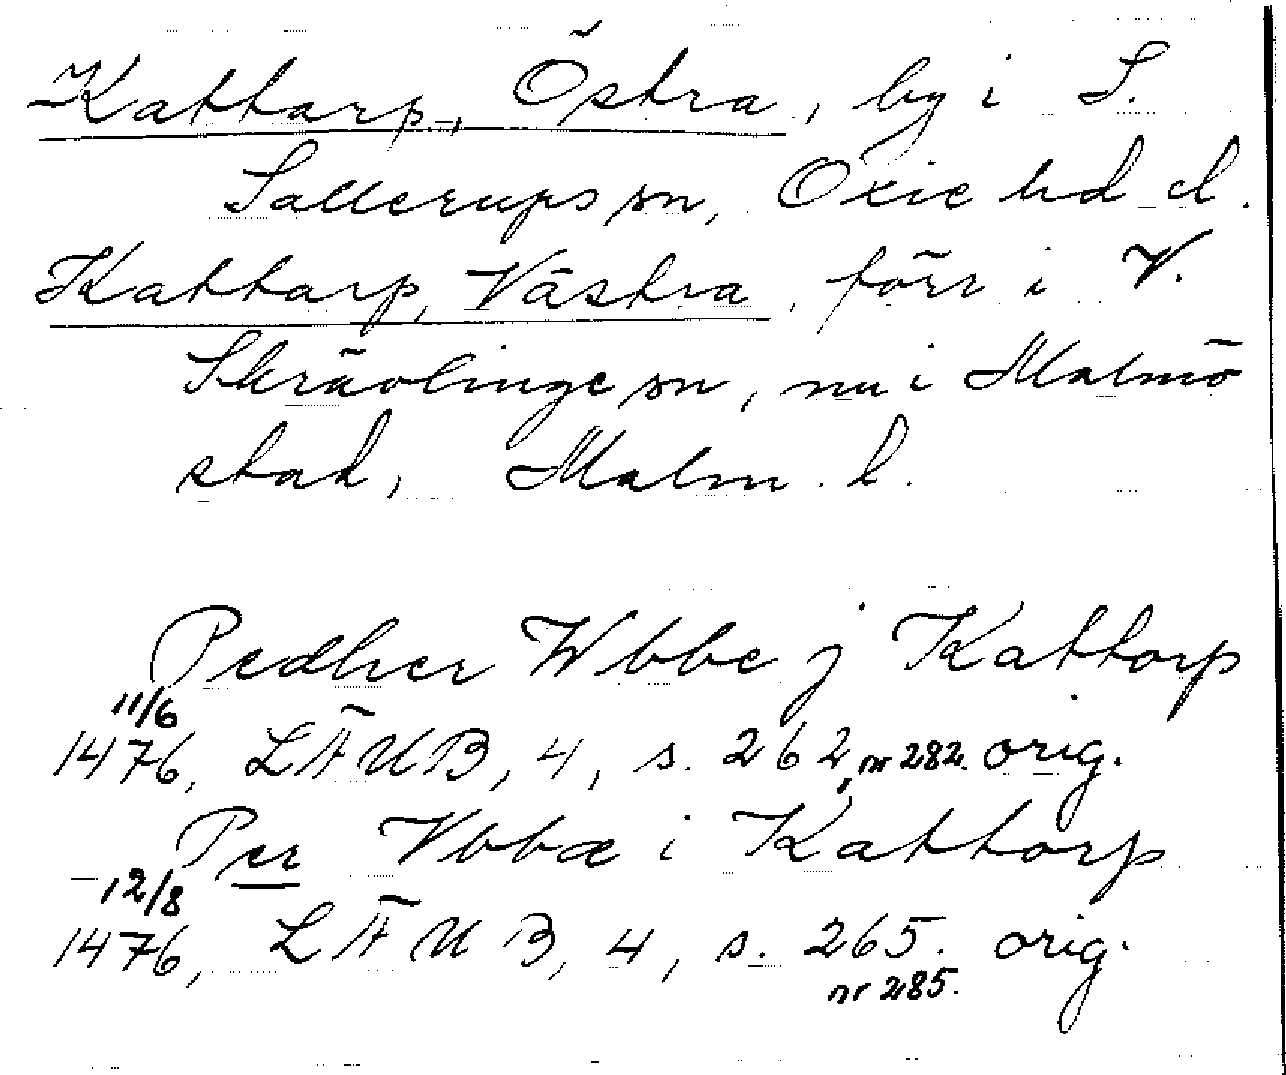 Kattarp, Östra, by i S.
Sallerups sn, Oxie hd el.
Kattarp, Västra, förr i V.
Skrävlinge sn, nu i Malmö
stad, Malm. l.
Pedher Wbbe j Kattorp
11/6
1476, LÄUB, 4, s. 262, nr 282. orig.
Per Vbbæ i Kattorp
12/8
1476, LÄUB, 4, s. 265. orig.
nr 285.